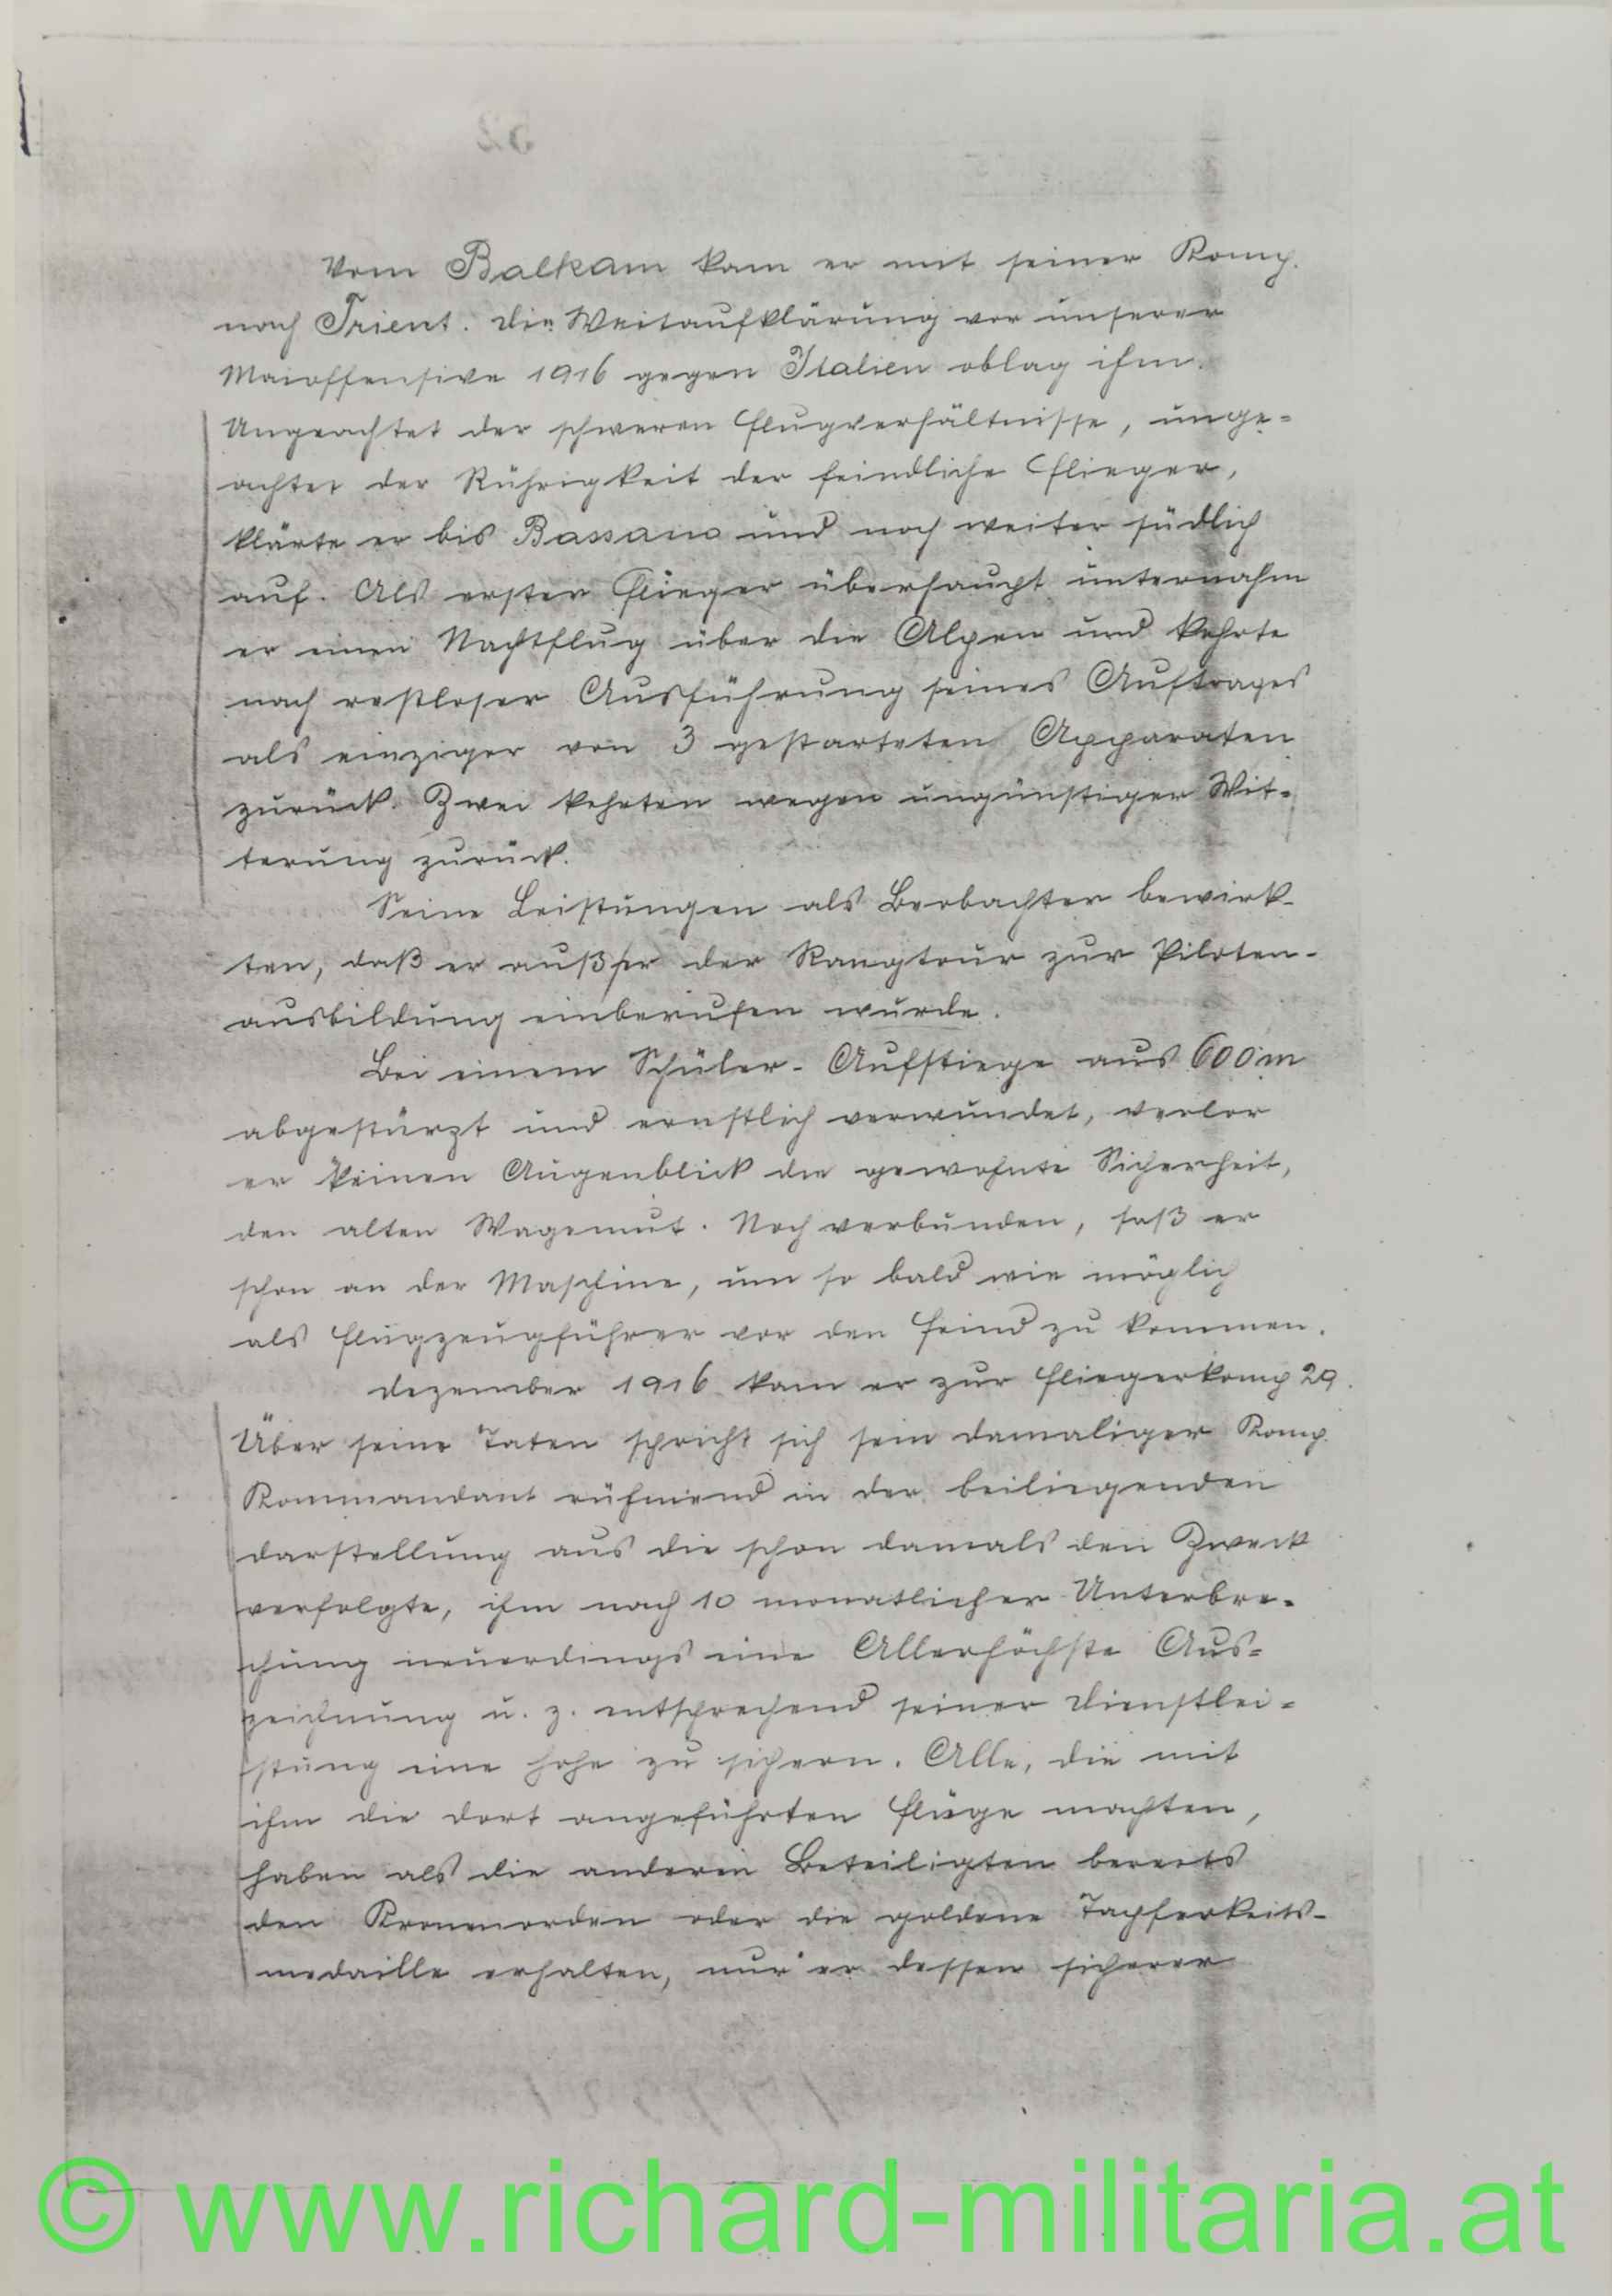 Vom Balkan kam er mit seiner Komp.
nach Trient. Die Weitaufklärung vor unserer
Maioffensive 1916 gegen Italien oblag ihm.
Ungeachtet der schweren Flugverhältnisse, unge-
achtet der Rührigkeit der feindliche Flieger,
klärte er bis Bassano und noch weiter südlich
auf. Als erster Flieger überhaupt unternahm
er einen Nachtflug über die Alpen und kehrte
nach restloser Ausführung seines Auftrages
als einziger von 3 gestarteten Apparaten
zurück. Zwei kehrten wegen ungünstiger Wit-
terung zurück.
Seine Leistungen als Beobachter bewirk-
ten, daß er außer der Rangtour zur Piloten-
ausbildung einberufen wurde.
Bei einem Schüler-Aufstiege aus 600 m
abgestürzt und ernstlich verwundet, verlor
er keinen Augenblick die gewohnte Sicherheit,
den alten Wagemut. Noch verbunden, saß er
schon an der Maschine, um so bald wie möglich
als Flugzeugführer vor den Feind zu kommen.
Dezember 1916 kam er zur Fliegerkomp 29.
Über seine Taten spricht sich sein damaliger Komp.
Kommandant rühmend in der beiliegenden
Darstellung aus die schon damals den Zweck
verfolgte, ihm nach 10 monatlicher Unterbre-
chung neuerdings eine Allerhöchste Aus-
zeichnung u. z. entsprechend seiner Dienstlei-
stung eine hohe zu sichern. Alle, die mit
ihm die dort angeführten Flüge machten,
haben als die anderen Beteiligten bereits
den Kronenorden oder die goldene Tapferkeits-
medaille erhalten, nur er dessen sicherer
© www.richard-militaria.at